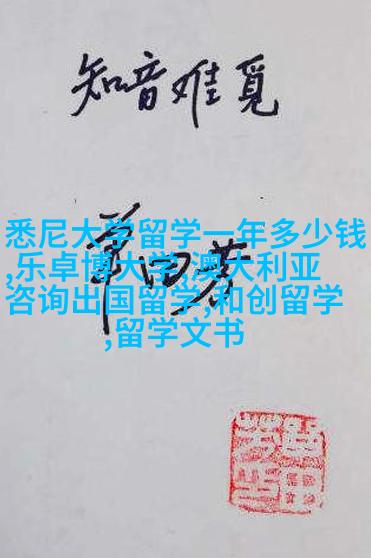 知音难觅
单田芳
悉尼大学留学一年多少钱
,乐卓博大学,澳大利亚
咨询出国留学,和创留学
,留学文书